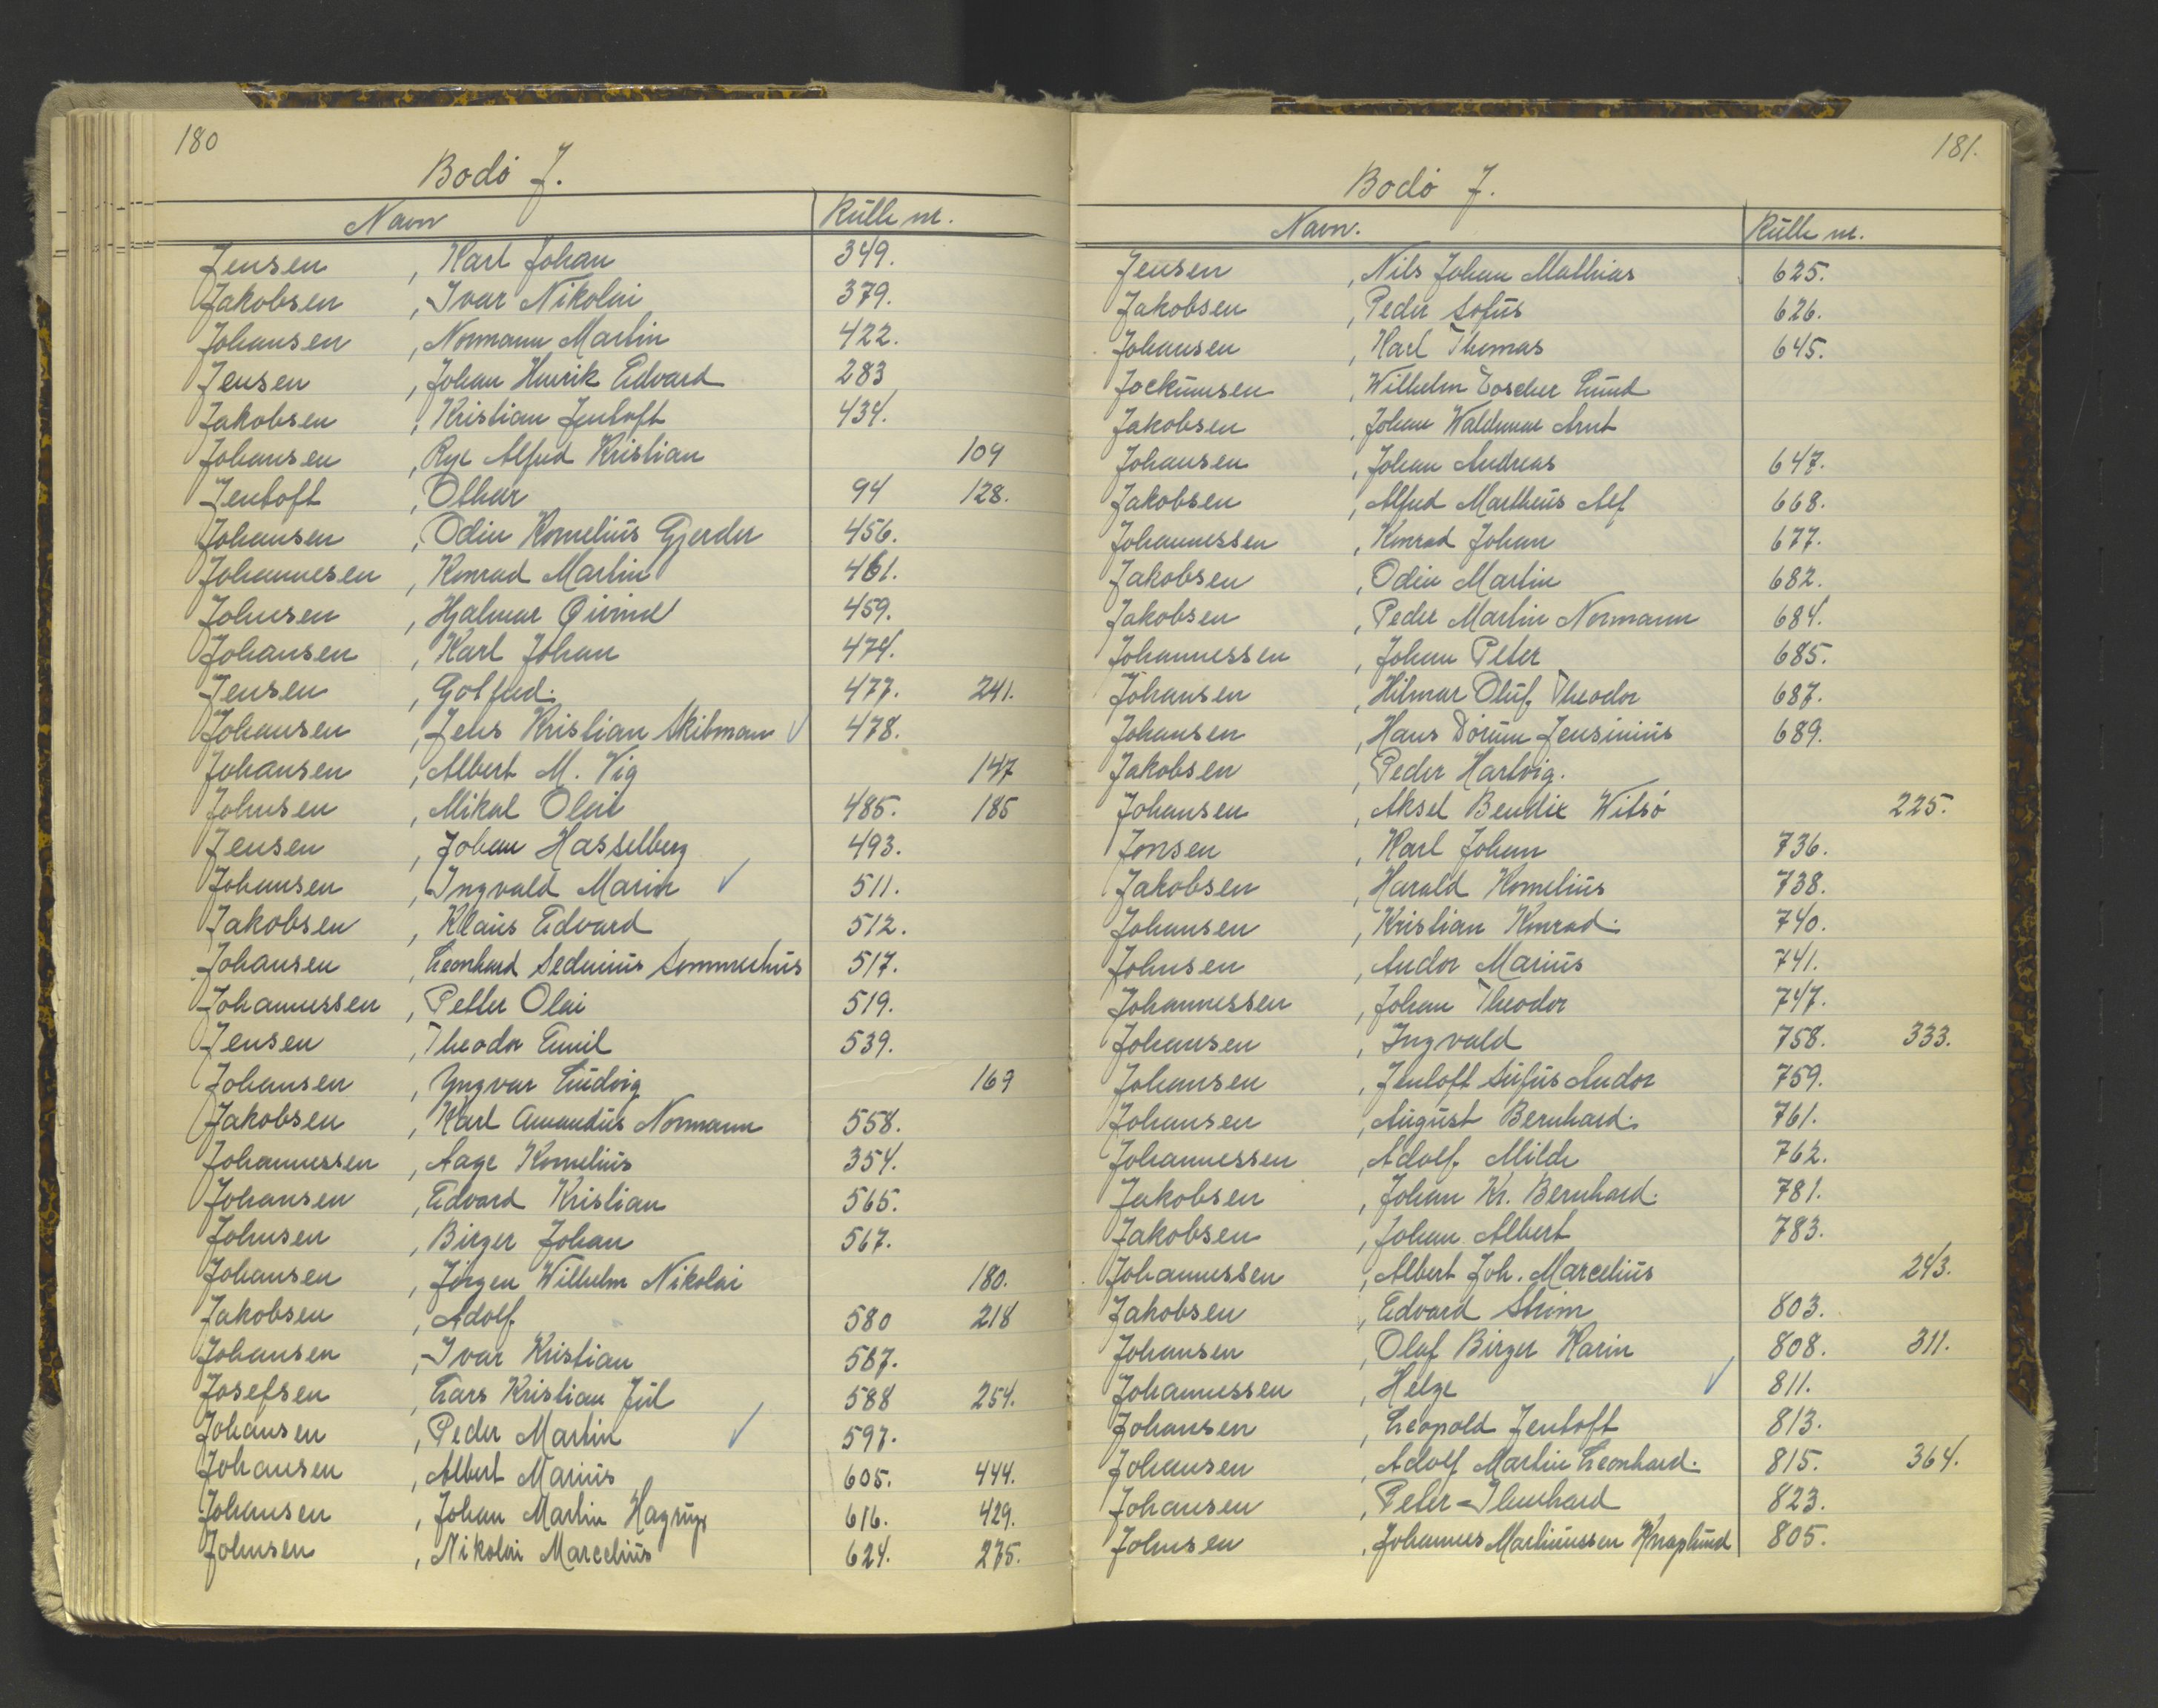 180
Bodø J.
Navn Rulle nr.
Jensen , Karl Johan 349.
Jakobsen , Ivar Nikolai 379.
Johansen , Normann Martin 422.
Jensen , Johan Henrik Edvard 283
Jakobsen , Kristian Jentoft 434.
Johansen , Alfred Kristian 109
Jentoft , Othar 94 128.
Johansen , Odin Kornelius Gjerder 456.
Johannesen , Konrad Martin 461.
Johnsen , Hjalmar 459.
Johansen , Karl Johan 474.
Jensen , Gotfred. 477. 241.
Johansen , Jens Kristian Skibmann ✓ 478.
Johansen , Albert M. Vig 147
Johnsen , Mikal Olai 485. 185
Jensen , Johan Hasselberg 493.
Johansen , Ingvald Marin ✓ 511.
Jakobsen , Klaus Edvard 512.
Johansen , Leonhard Sedenius Sommerhus 517.
Johannessen , Petter Olai 519.
Jensen , Theodor Emil 539.
Johansen , Yngvar Ludvig 167
Jakobsen , Karl Amandus Normann 558.
Johannessen , Aage Kornelius 354.
Johansen , Edvard Kristian 565.
Johnsen , Birger Johan 567.
Johansen , Jørgen Wilhelm Nikolai 180.
Jakobsen , Adolf 580 218
Johansen , Ivar Kristian 587.
Josefsen , Lars Kristian Jul 588 254.
Johansen , Peder Martin ✓ 597.
Johansen , Albert Marius 605. 444.
Johansen , Johan Martin Hagrup 616. 429.
Johnsen , Nikolai Marcelius 624. 275.
181.
Bodø J.
Navn. Rulle nr.
Jensen , Nils Johan Mathias 625.
Jakobsen , Peder Sofus 626.
Johansen , Karl Thomas 645.
Jockumsen , Wilhelm Lund
Jakobsen , Johan Waldemar Arnt
Johansen , Johan Andreas 647.
Jakobsen , Alfred Martheus Alf 668.
Johannessen , Konrad Johan 677.
Jakobsen , Odin Martin 682.
Jakobsen , Peder Martin Normann 684.
Johannessen , Johan Peter 685.
Johansen , Hilmar Oluf Theodor 687.
Johansen , Hans Dørum Jensinius 689.
Jakobsen , Peder Hartvig.
Johansen , Aksel Bendix Witsø 225.
Jonsen , Karl Johan 736.
Jakobsen , Harald Kornelius 738.
Johansen , Kristian Konrad. 740.
Johnsen , Andor Marius 741.
Johannessen , Johan Theodor 747.
Johansen , Ingvald 758. 333.
Johansen , Jentoft Sufus Andor 759.
Johansen , August Bernhard. 761.
Johannessen , Adolf Milde 762.
Jakobsen , Johan Kr. Bernhard. 781.
Jakobsen , Johan Albert 783.
Johannessen , Albert Joh. Marcelius 293.
Jakobsen , Edvard Strøm 803.
Johansen , Olaf Birger Karin 808. 311.
Johannessen , Helge ✓ 811.
Johansen , Leopold Jentoft 813.
Johansen , Adolf Martin Leonhard. 815. 364.
Johansen , Peter Ihenhard 823.
Johnsen , Johannes Martinussen Knaplund 805.